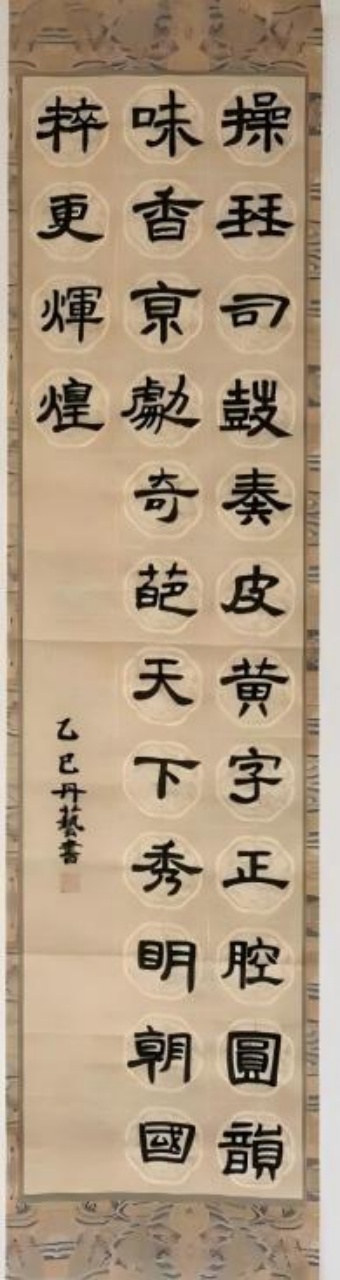 操珡司鼓奏皮黄字正腔圓韻
味香亰勮奇葩天下秀眀朝國
粹更煇煌
乙巳丹藝書